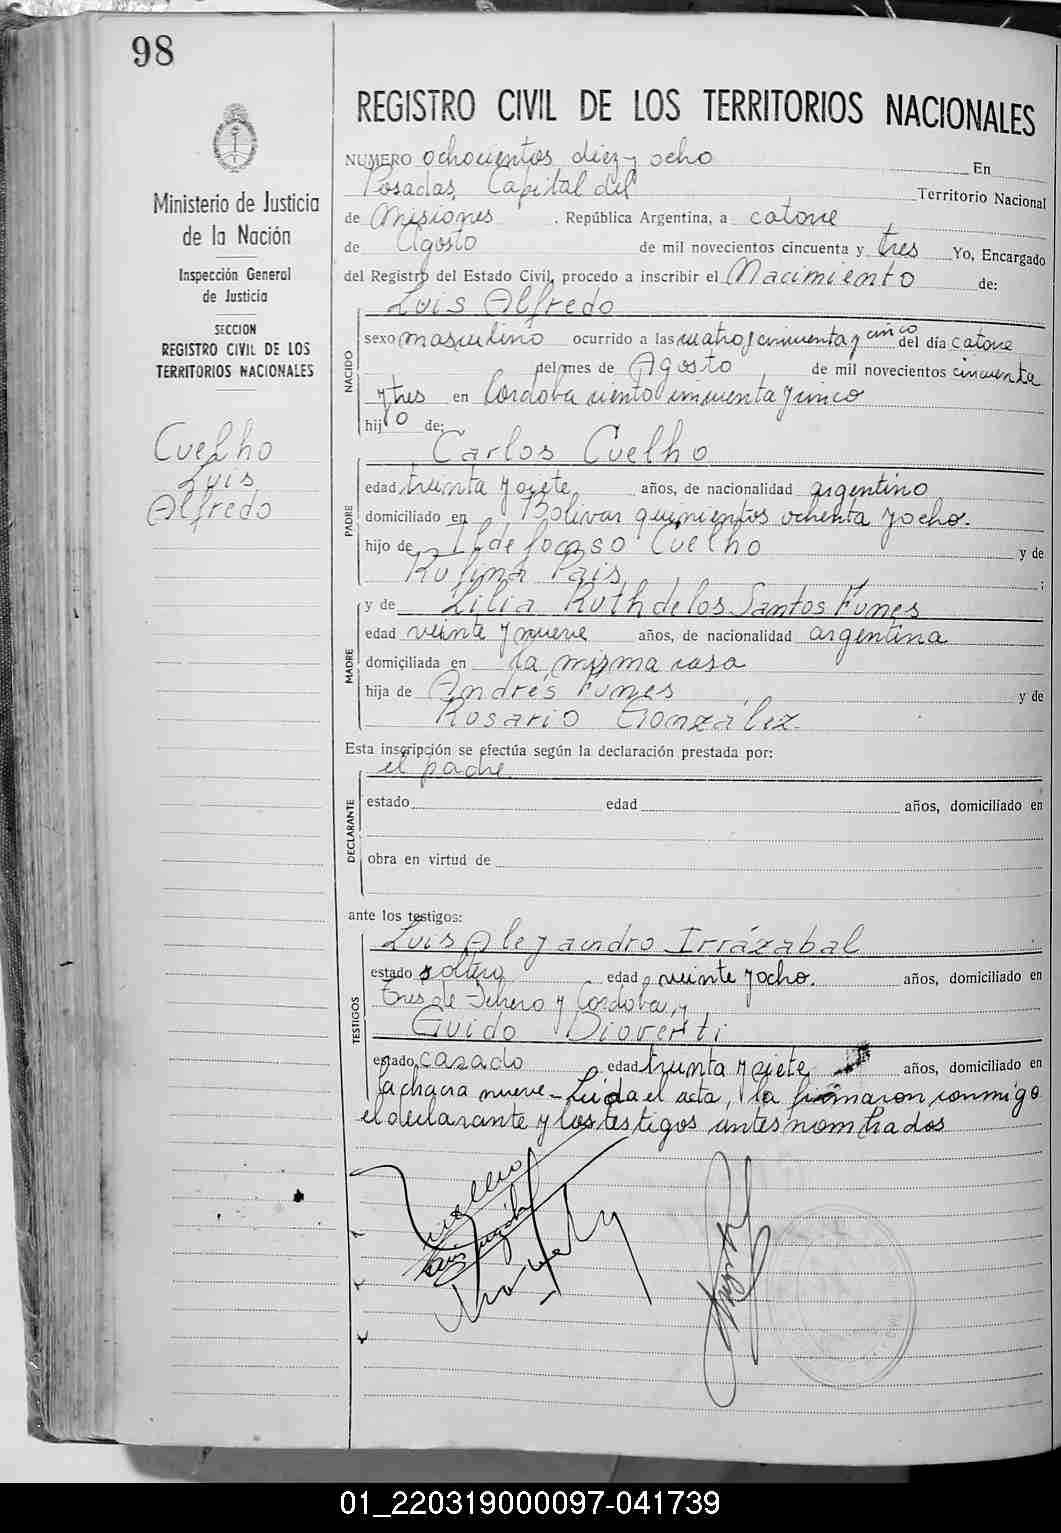 98
REGISTRO CIVIL DE LOS TERRITORIOS NACIONALES
NUMERO ochocientos diez y ocho En
Posadas, Capital del Territorio Nacional
de Misiones. República Argentina, a catorce
de Agosto de mil novecientos cincuenta y tres Yo, Encargado
del Registro del Estado Civil, procedo a inscribir el Nacimiento de:
Luis Alfredo
NACIDO
sexo masculino ocurrido a las cuatro y cincuenta y cinco del día catorce
del mes de Agosto de mil novecientos cincuenta
y tres en Córdoba ciento cincuenta y cinco
hijo de:
Carlos Cuelho
PADRE
edad treinta y siete años, de nacionalidad argentino
domiciliado en Bolivar quinientos ochenta y ocho.
hijo de Ildefocaso Cuelho y de
Rufina Pais ;
y de Lilia Ruth de los Santos Funes
MADRE
edad veinte y nueve años, de nacionalidad argentina
domiciliada en la misma casa
hija de Andrés Funes y de
Rosario González
Esta inscripción se efectúa según la declaración prestada por:
el padre
DECLARANTE
estado edad años, domiciliado en
obra en virtud de
ante los testigos:
Luis Alejandro Irrázabal
TESTIGOS
estado soltero edad veinte y ocho. años, domiciliado en
Tres de Febrero y Córdoba, y
Guido Dioverti
estado casado edad treinta y siete años, domiciliado en
la chacra nueve - Leida el acta, la firmaron conmigo
el declarante y los testigos antes nombrados
Ministerio de Justicia
de la Nación
Inspección General
de Justicia
SECCION
REGISTRO CIVIL DE LOS
TERRITORIOS NACIONALES
Cuelho
Luis
Alfredo
01_220319000097-041739